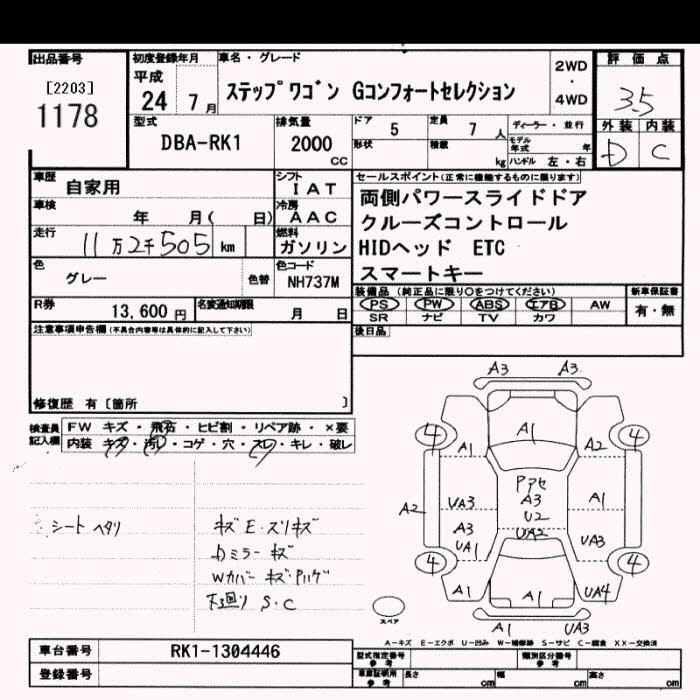 出品番号
[2203]
1178
初度登録年月
平成
24 7月
車名・グレード
ステップワゴン Gコンフォートセレクション
2WD
・
4WD
評価点
3.5
外装 内装
D C
型式
DBA-RK1
排気量
2000
CC
ドア 5
定員 7 人
形状
積載 kg
ディーラー・並行
モデル年式 年
ハンドル 左・右
車歴
自家用
シフト
IAT
車検
年 月( 日)
冷房
AAC
走行
11万2千505 km
燃料
ガソリン
色
グレー
色替
色コード
NH737M
R券
13,600円
名変通知期限
月 日
セールスポイント(正常に機能するものに限ります)
両側パワースライドドア
クルーズコントロール
HIDヘッド ETC
スマートキー
装備品(純正品に限り○をつけてください)
PS PW ABS エアB AW
SR ナビ TV カワ
新車保証書
有・無
後日品
注意事項申告欄(不具合内容等は具体的に記入して下さい)
修復歴 有[箇所 ]
検査員記入欄
FW キズ・飛石・ヒビ割・リペア跡・×要
内装 キズ・汚れ・コゲ・穴・スレ・キレ・破レ
シートヘタリ
キズE・スリキズ
Dミラーキズ
Wカバーキズ・ハガレ
下廻り S・C
A3 A3
4 4
A1 A1 A2
Pアセ
A3
U2
UA2
A2 UA3 A1
A3
UA1 UA3
4 4
A1 A1 UA4
A1 UA3
スペア
A-キズ E-エクボ U-凹み W-補修跡 S-サビ C-腐食 XX-交換済
車台番号
RK1-1304446
登録番号
型式指定番号
参考
類別区分番号
参考
車庫証明用
参考
長さ cm 幅 cm 高さ cm